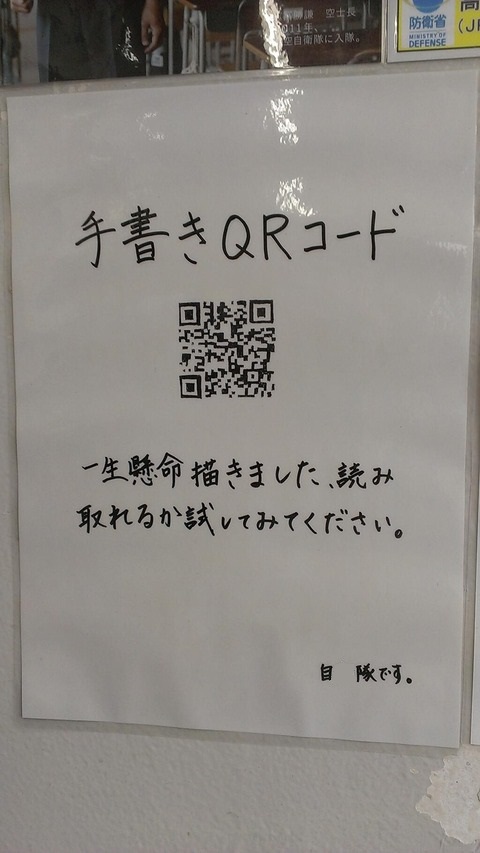 空士長
2011年、
空自衛隊に入隊。
防衛省
MINISTRY OF
DEFENSE
手書きQRコード
一生懸命描きました、読み
取れるか試してみてください。
自 隊です。